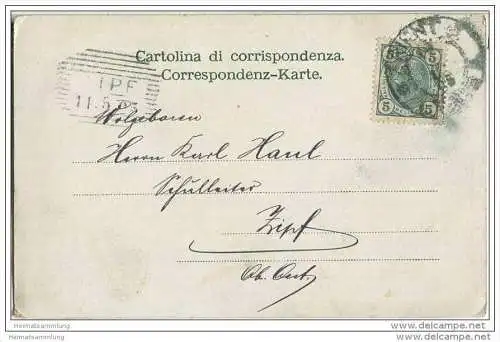 Cartolina di corrispondenza.
Correspondenz-Karte.
IPF
11.5.03
5 5
5 5
Wolgeboren
Herrn Karl Haul
Schulleiter
Zipf
Ob. Oest.
Heimatsammlung
Heimatsammlung.com
www.delcampe.net